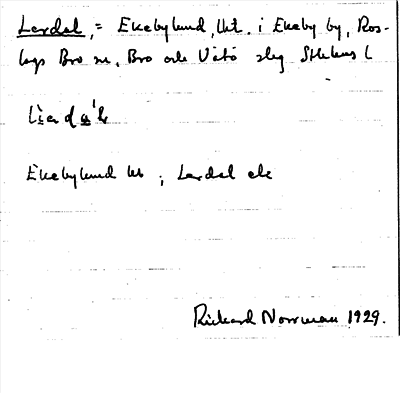 Lerdal, = Ekebylund, lht. i Ekeby by, Ros-
lags Bro sn, Bro och Vätö slg Sthlms l

Ekebylund lht ; Lerdal ek
Rickard Norrman 1929.